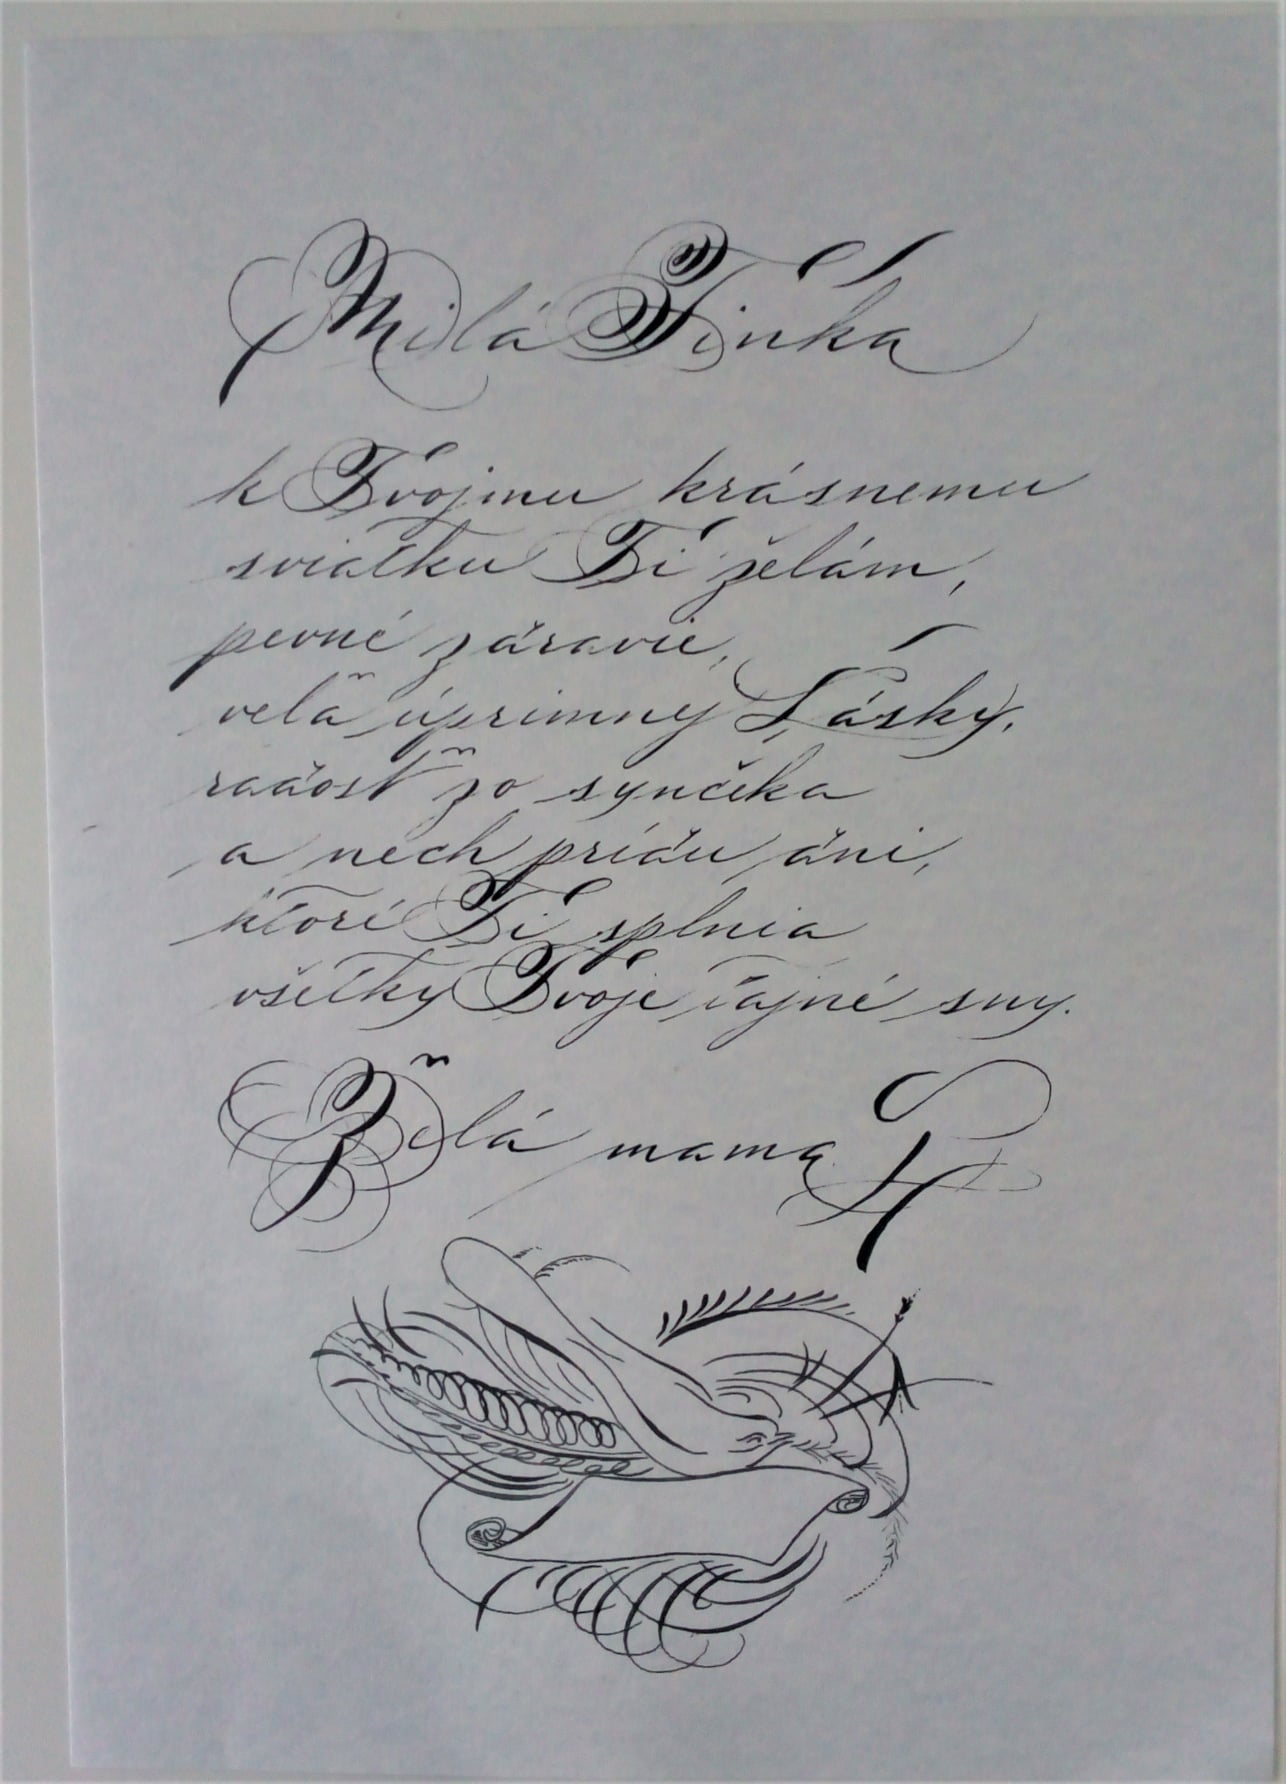 Milá Tinka
k Tvojmu krásnemu
sviatku Ti želám,
pevné zdravie,
veľa úprimny Lásky,
radosť zo synčeka
a nech prídu dni,
ktoré Ti splnia
všetky Tvoje tajné sny.
mama